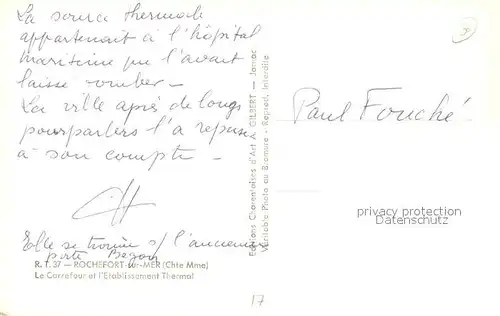 La source thermale
appartenait à l'hôpital
maritime qui l'avait
laissé tomber –
La ville après de longs
pourparlers l'a repris
à son compte –
Elle se trouve s/ l'ancienne
porte Begon
R. T. 37 — ROCHEFORT-sur-MER (Chte Mme)
Le Carrefour et l'Etablissement Thermal
Editions Charentaises d'Art GILBERT — Jarnac
Véritable Photo au Bromure - Reprod. Interdite
Paul Fouché
privacy protection
Datenschutz
17